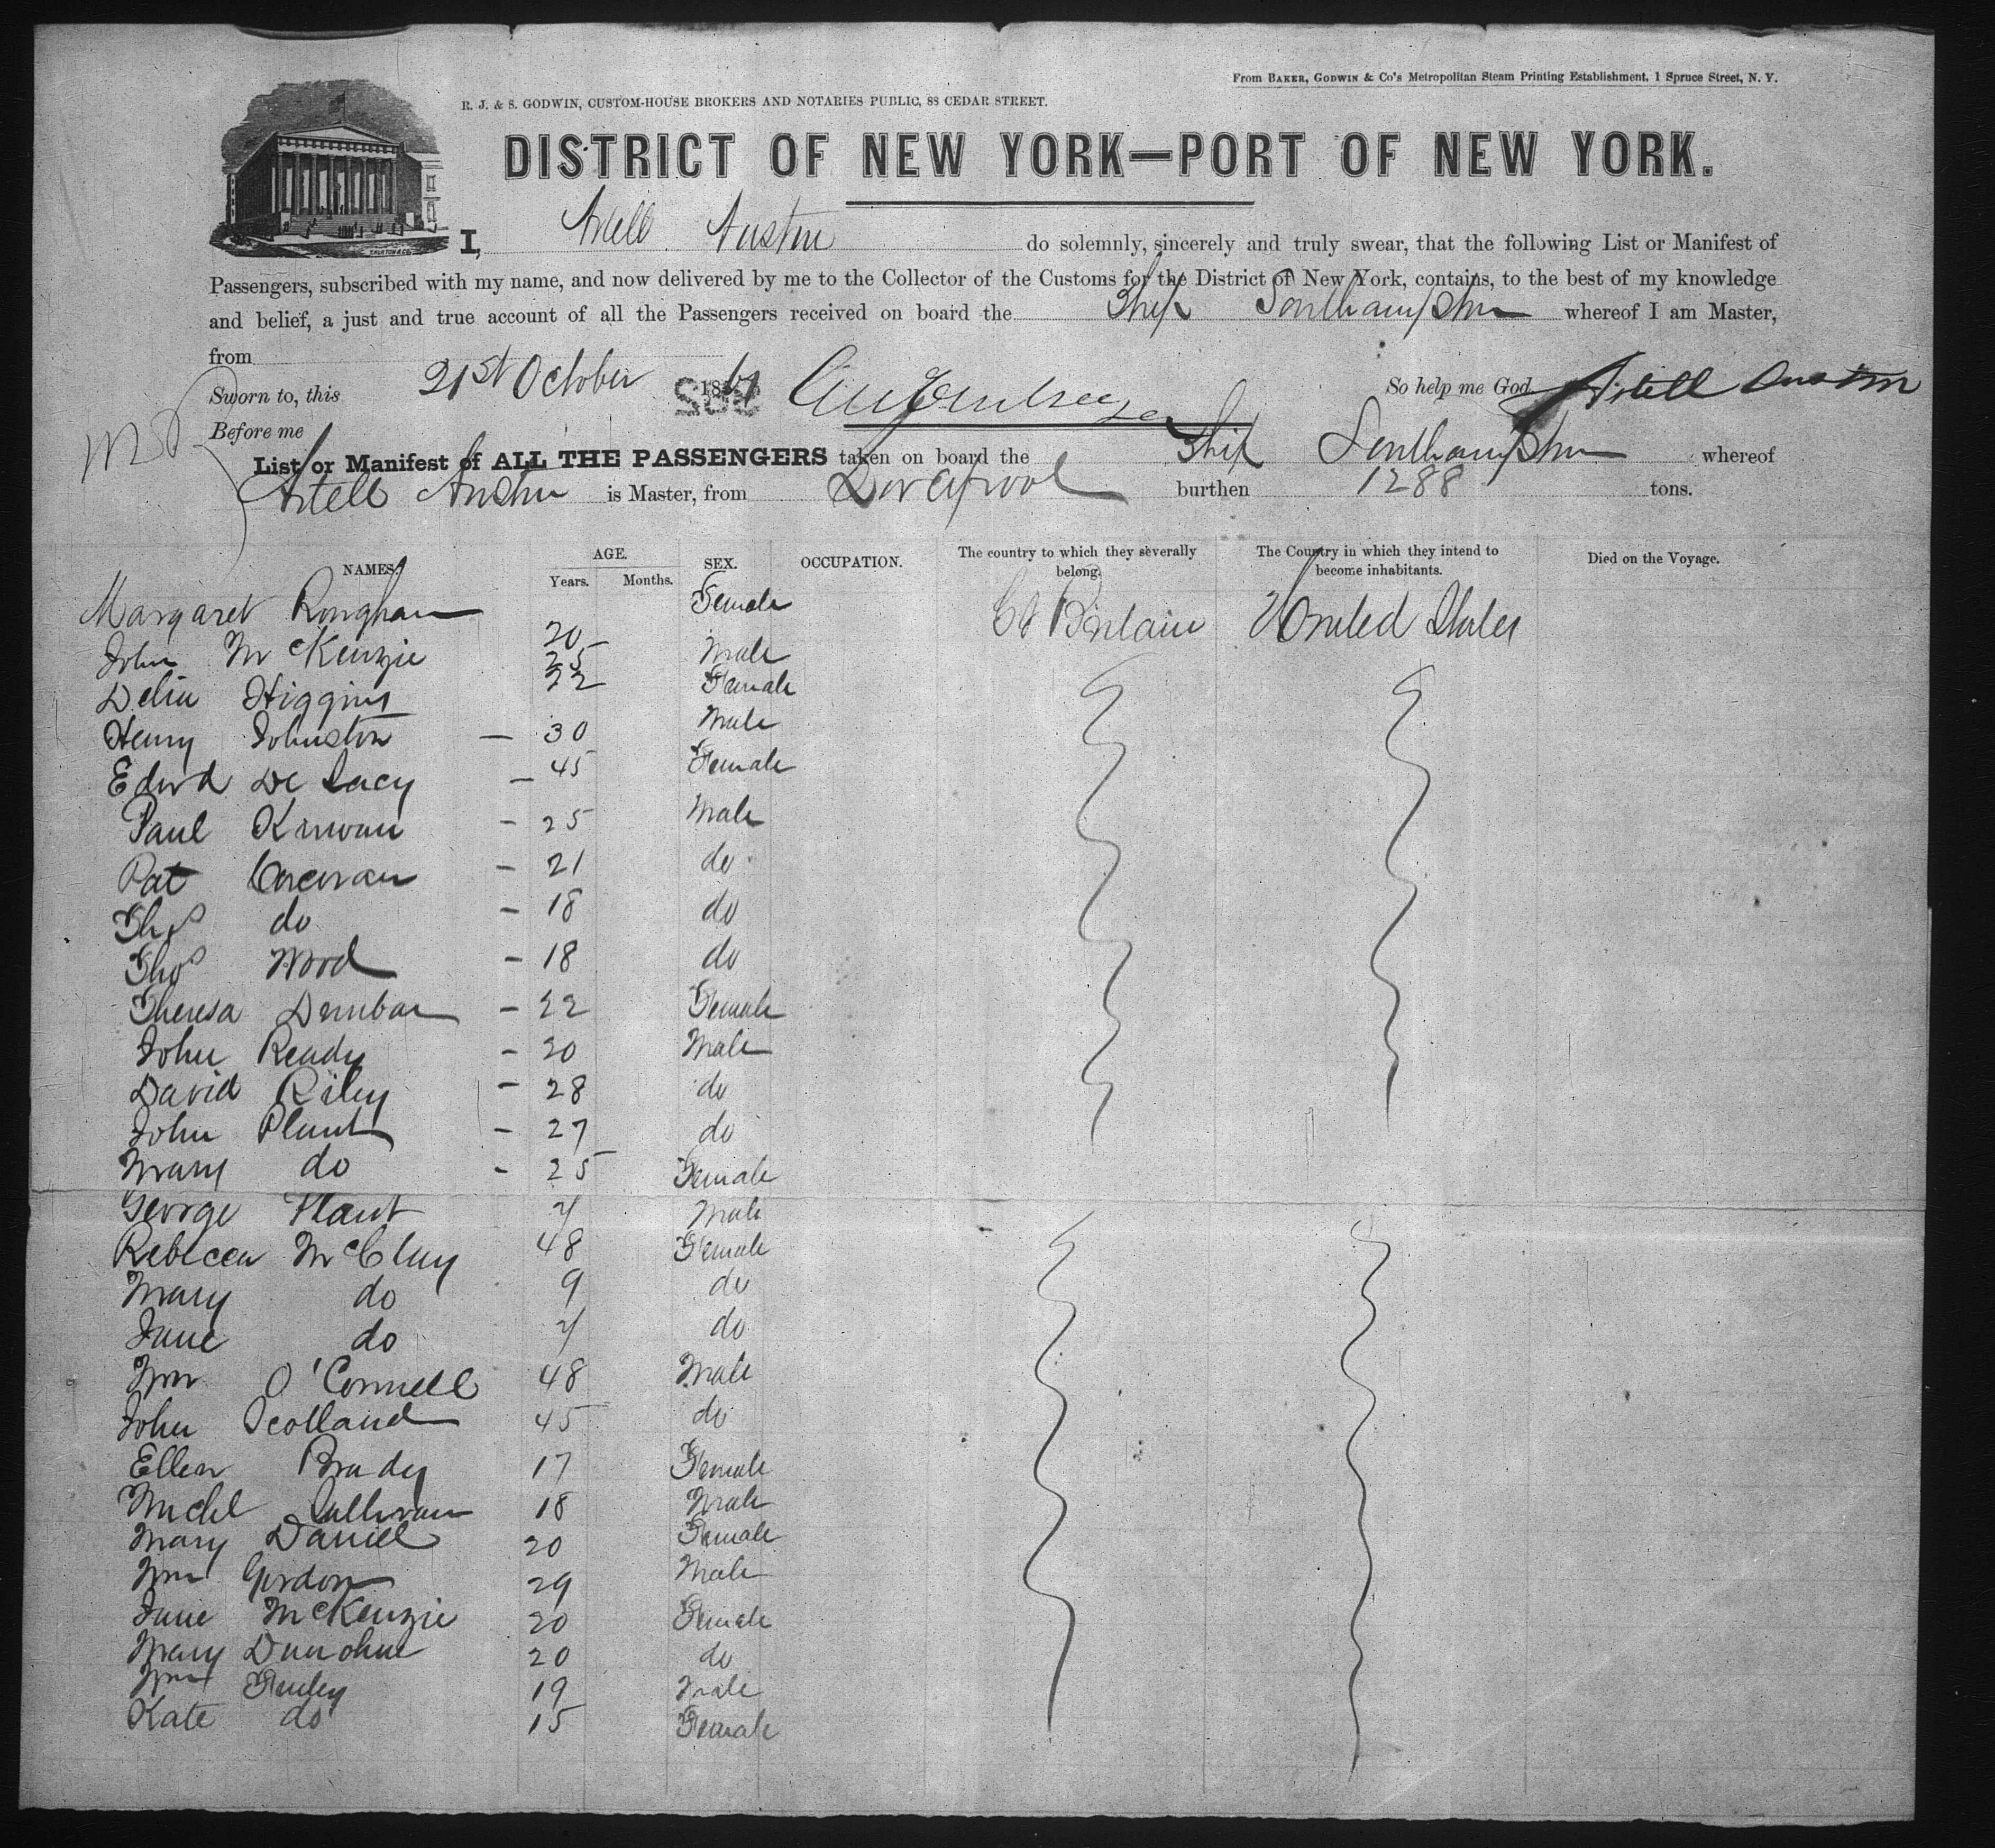 From BAKER, GODWIN & Co's Metropolitan Steam Printing Establishment, 1 Spruce Street, N. Y.
R. J. & S. GODWIN, CUSTOM-HOUSE BROKERS AND NOTARIES PUBLIC, 88 CEDAR STREET.
DISTRICT OF NEW YORK—PORT OF NEW YORK.
I, Artell Austin do solemnly, sincerely and truly swear, that the following List or Manifest of
Passengers, subscribed with my name, and now delivered by me to the Collector of the Customs for the District of New York, contains, to the best of my knowledge
and belief, a just and true account of all the Passengers received on board the Ship Southampton whereof I am Master,
from
Sworn to, this 21st October 18 So help me God. Artell Austin
Before me
List or Manifest of ALL THE PASSENGERS taken on board the Ship Southampton whereof
Artell Austin is Master, from Liverpool burthen 1288 tons.
NAMES. AGE. Years. Months. SEX. OCCUPATION. The country to which they severally belong. The Country in which they intend to become inhabitants. Died on the Voyage.
Margaret Female Gt Britain United States
John McKenzie 25 Male
Delia Higgins 22 Female
Henry Johnston — 30 Male
Edwd De Lacy — 45 Female
Paul Kirwan - 25 Male
Pat Corcoran - 21 do
Thos do - 18 do
Thos Wood - 18 do
Theresa - 22 Female
John Ready - 20 Male
David Riley - 28 do
John Plunt - 27 do
Mary do - 25 Female
George Plant Male
Rebecca McClay 48 Female
Mary do 9 do
Jane do do
Wm O'Connell 48 Male
John Scolland 45 do
Ellen Brady 17 Female
Michl Sullivan 18 Male
Mary Daniel 20 Female
Wm Gordon 29 Male
Jane McKenzie 20 Female
Mary Donohue 20 do
Wm 19 Male
Kate do 15 Female